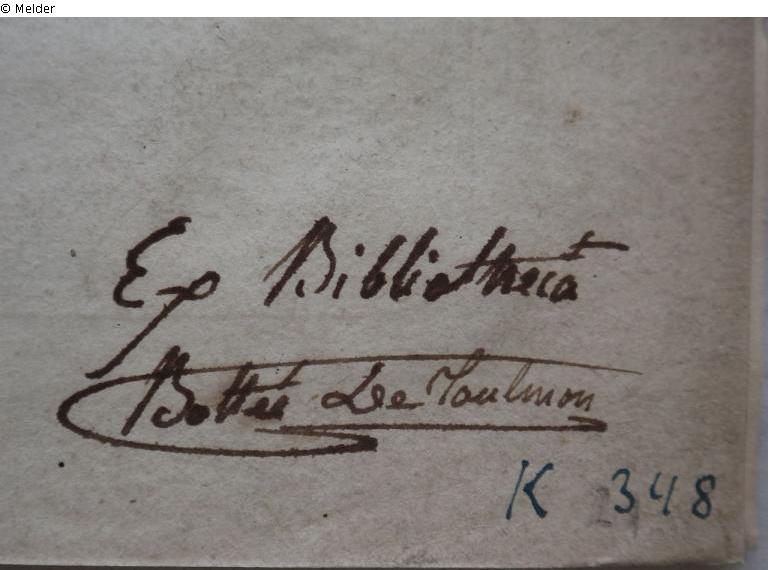 © Melder
Ex Bibliothecâ
Bottée De Toulmon
K 348